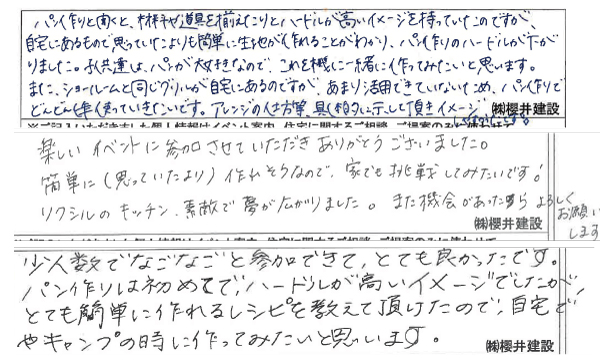 パン作りと聞くと、材料や道具を揃えたりとハードルが高いイメージを持っていたのですが、
自宅にあるもので思っていたよりも簡単に生地が作れることがわかり、パン作りのハードルが下が
りました。子供達は、パンが大好きなので、これを機に一緒に作ってみたいと思います。
また、ショールームと同じグリルが自宅にあるのですが、あまり活用できていないため、パン作りで
どんどん使っていきたいです。アレンジの仕方等、具体的に示して頂きイメージ
㈱櫻井建設
楽しいイベントに参加させていただきありがとうございました。
簡単に(思っていたより)作れそうなので、家でも挑戦してみたいです!
リクシルのキッチン、素敵で夢が広がりました。また機会があったらよろしく
お願い
します
㈱櫻井建設
少人数でなごなごと参加できて、とても良かったです。
パン作りは初めてで、ハードルが高いイメージでしたが、
とても簡単に作れるレシピを教えて頂けたので、自宅で
やキャンプの時に作ってみたいと思います。
㈱櫻井建設